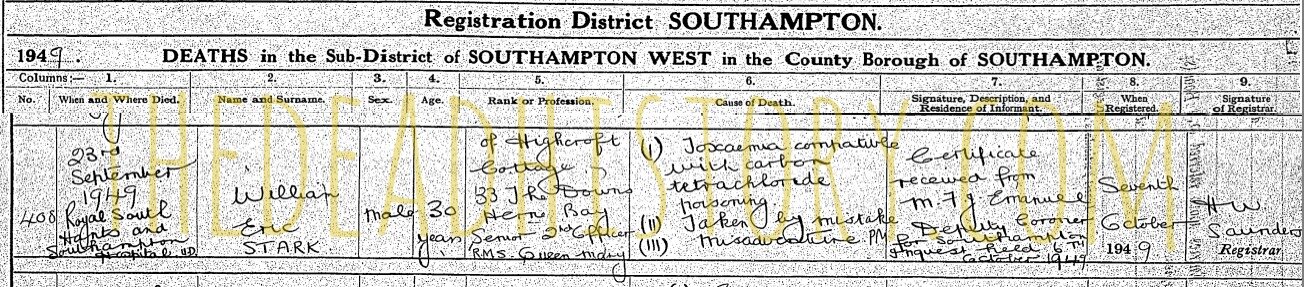 Registration District SOUTHAMPTON.
1949. DEATHS in the Sub-District of SOUTHAMPTON WEST in the County Borough of SOUTHAMPTON.
Columns:— 1. 2. 3. 4. 5. 6. 7. 8. 9.
No. When and Where Died. Name and Surname. Sex. Age. Rank or Profession. Cause of Death. Signature, Description, and Residence of Informant. When Registered. Signature of Registrar.
THEDEADHISTORY.COM
408
23rd
September
1949
Royal South
Hants and
Southampton
Hospital. U.D.
William
Eric
STARK.
Male
30
years
of Highcroft
Cottage,
33 The Downs
Herne Bay
Senior 2nd Officer
RMS. Queen Mary
(I) Toxaemia compatible
with carbon
tetrachloride
poisoning.
(II) Taken by mistake
(III) Misadventure. PM
Certificate
received from
M. F. J. Emanuel
Deputy Coroner
for Southampton
Inquest held 6TH
October 1949
Seventh
October
1949
H W
Saunders
Registrar